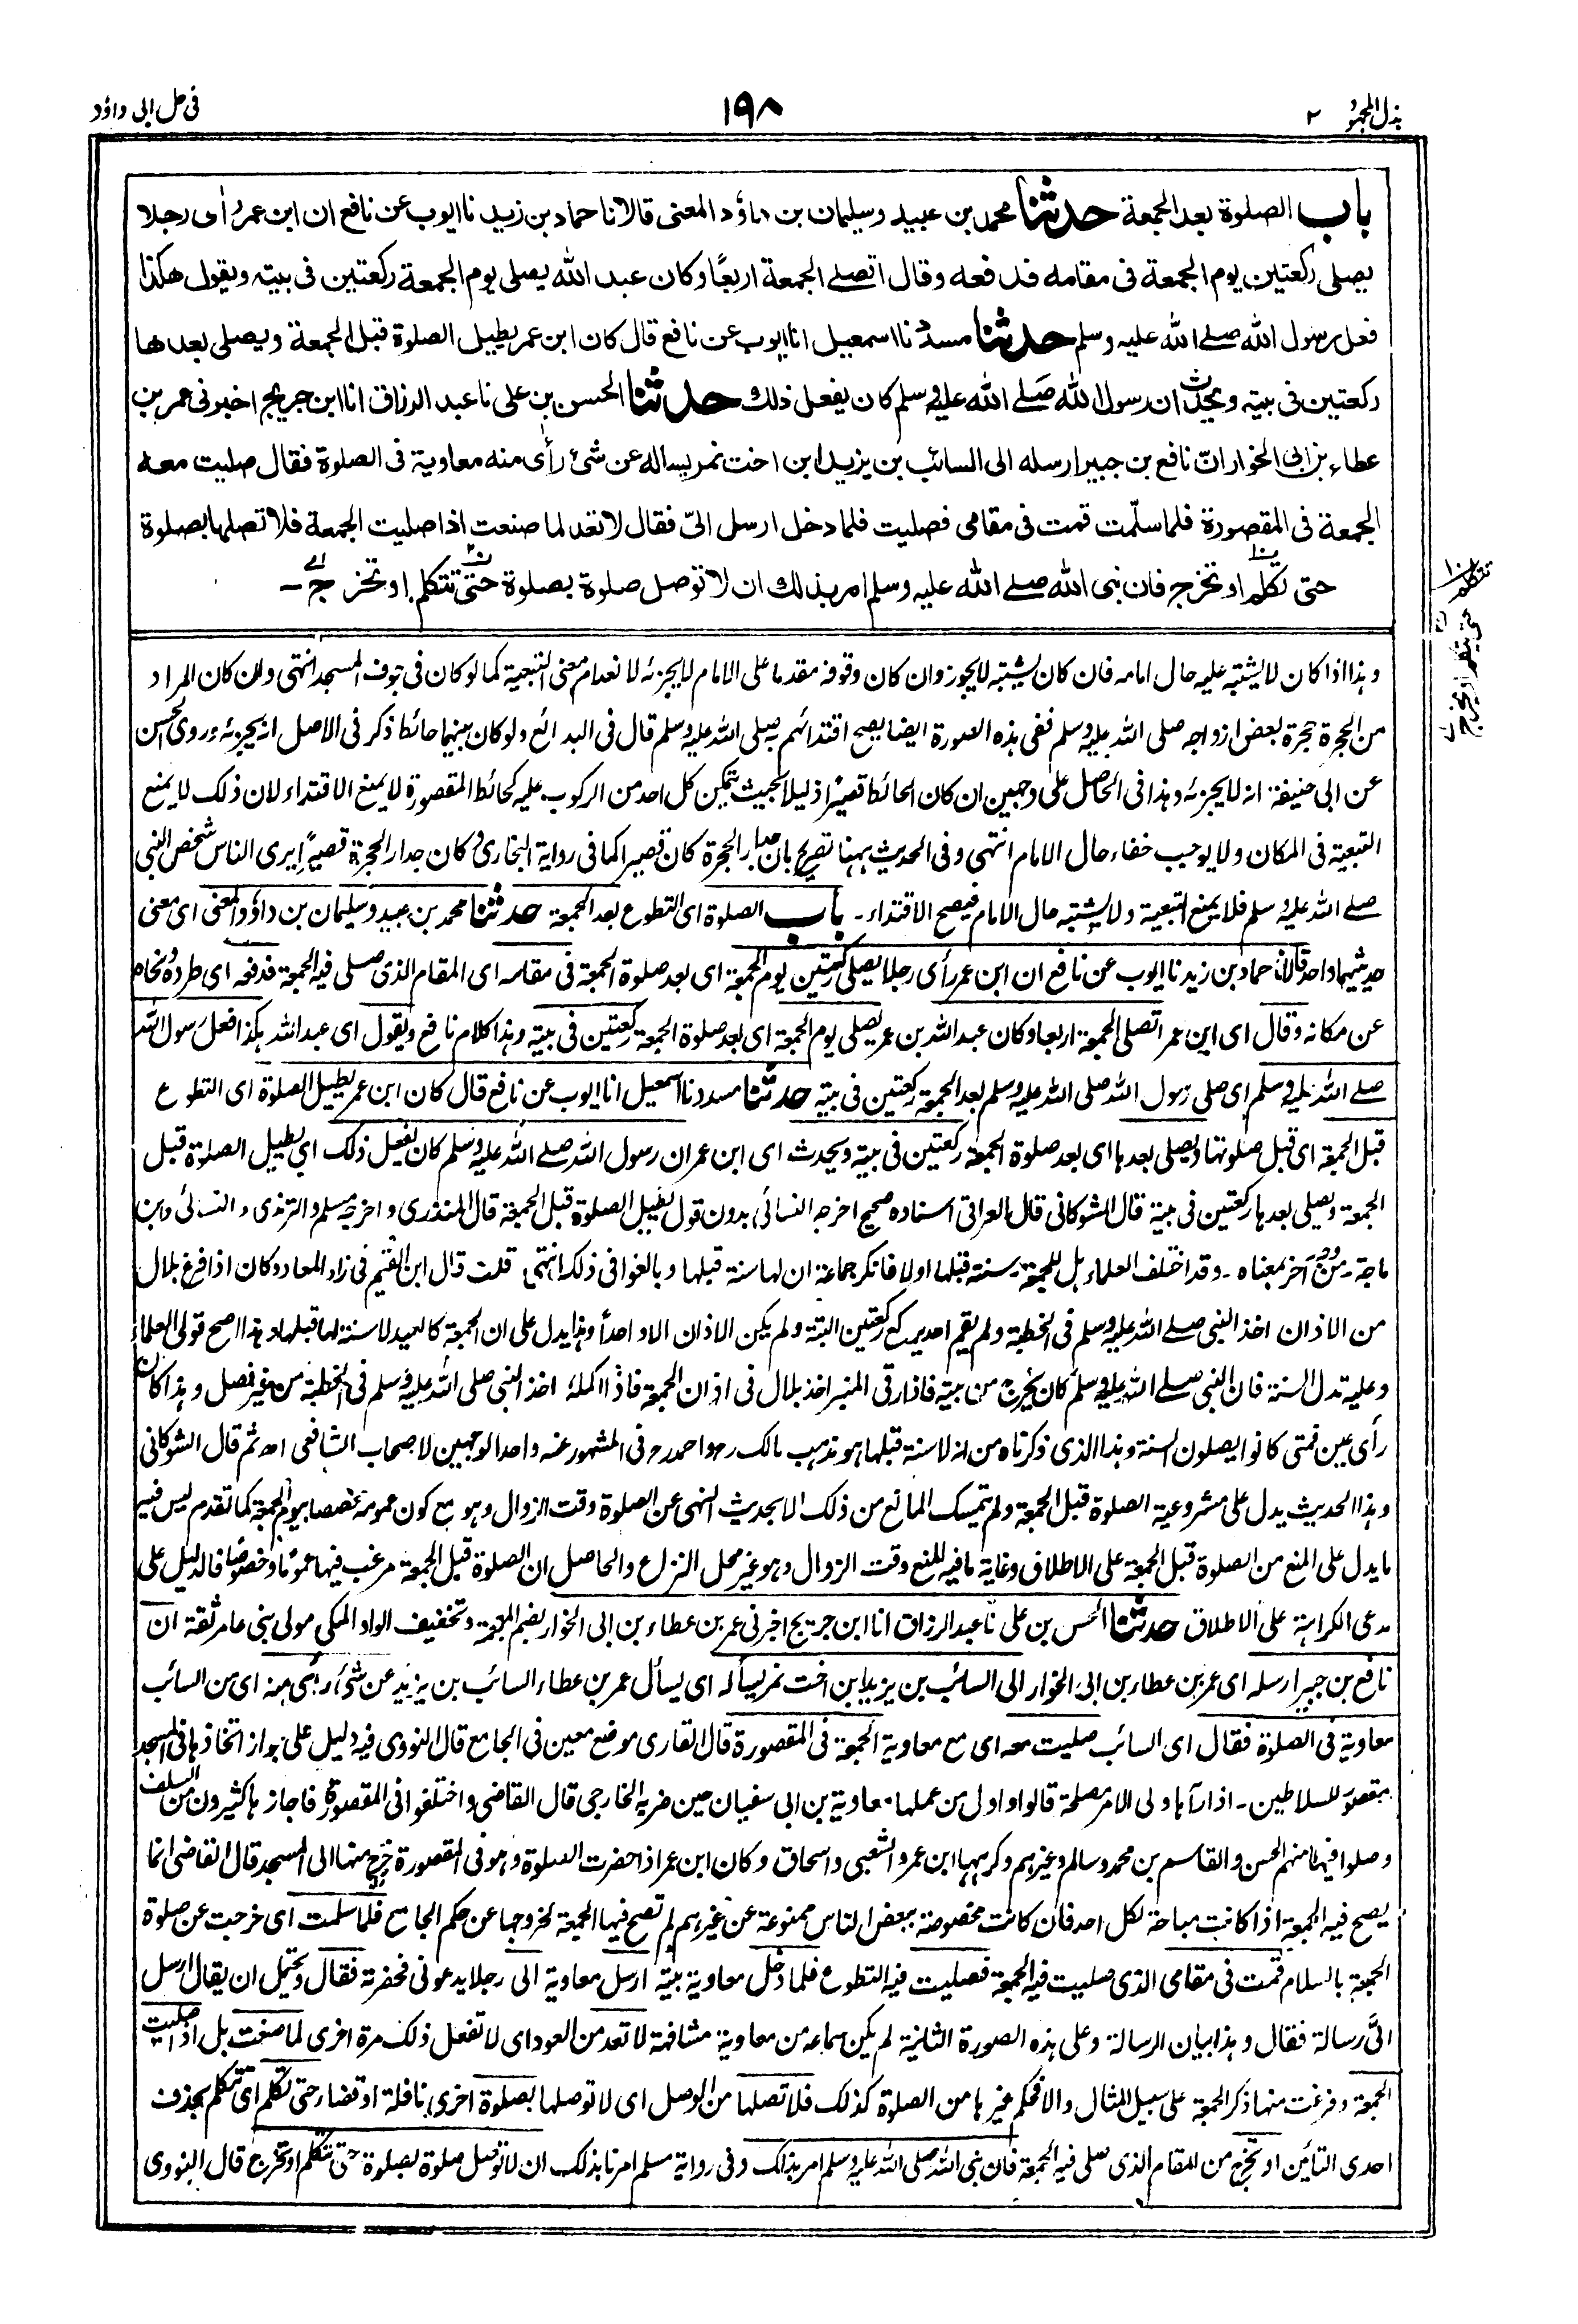 بذل المجهود ٢
١٩٨
فى حل ابى داؤد
باب الصلوة بعد الجمعة حدثنا محمد بن عبيد وسليمان بن داؤد المعنى قالانا حماد بن زيد نا ايوب عن نافع ان ابن عمر رأى رجلا
يصلى ركعتين يوم الجمعة فى مقامه فدفعه وقال اتصلے الجمعة اربعًا وكان عبد الله يصلى يوم الجمعة ركعتين فى بيته ويقول هكذا
فعل رسول الله صلے الله عليه وسلم حدثنا مسدد نا اسمعيل انا ايوب عن نافع قال كان ابن عمر يطيل الصلوة قبل الجمعة ويصلى بعدها
ركعتين فى بيته ويحدث ان رسول الله صلے الله عليه وسلم كان يفعل ذلك حدثنا الحسن بن على نا عبد الرزاق انا ابن جريج اخبرنى عمر بن
عطاء بن ابى الخوار انّ نافع بن جبير ارسله الى السائب بن يزيد ابن اخت نمر يساله عن شئ رأى منه معاوية فى الصلوة فقال صليت معه
الجمعة فى المقصورة فلما سلّمت قمت فى مقامى فصليت فلما دخل ارسل الىّ فقال لا تعد لما صنعت اذا صليت الجمعة فلا تصلها بصلوة
حتى تكلم او تخرج فان نبى الله صلے الله عليه وسلم امر بذلك ان لا توصل صلوة بصلوة حتى تتكلم او تخرج ـ
تتكلم
حتى يتكلم او يخرج
وهذا اذا كان لا يشتبه عليه حال امامه فان كان يشتبه لا يجوز وان كان وقوفه مقدما على الامام لا يجزئه لانعدام معنى التبعية كما لو كان فى جوف المسجد انتهى ولان كان المراد
من الحجرة حجرة بعض ازواجه صلى الله عليه وسلم ففى هذه الصورة ايضا يصح اقتدائهم به صلى الله عليه وسلم قال فى البدائع ولو كان بينهما حائط ذكر فى الاصل انه يجزئه وروى الحسن
عن ابى حنيفة انه لا يجزئه وهذا فى الحاصل على وجهين ان كان الحائط قصيرًا ذليلا بحيث يتمكن كل احد من الركوب عليه كحائط المقصورة لا يمنع الاقتداء لان ذلك لا يمنع
التبعية فى المكان ولا يوجب خفاء حال الامام انتهى وفى الحديث ههنا تصريح بان جدار الحجرة كان قصيرا كما فى رواية البخارى وكان جدار الحجرة قصيرًا يرى الناس شخص النبى
صلے الله عليه وسلم فلا يمنع التبعية ولا يشتبه حال الامام فيصح الاقتداء ـ باب الصلوة اى التطوع بعد الجمعة حدثنا محمد بن عبيد وسليمان بن داؤد المعنى اى معنى
حديثيهما واحد قالانا حماد بن زيد نا ايوب عن نافع ان ابن عمر رأى رجلا يصلى ركعتين يوم الجمعة اى بعد صلوة الجمعة فى مقامه اى المقام الذى صلى فيه الجمعة فدفعه اى طرده ونحاه
عن مكانه وقال اى ابن عمر اتصلى الجمعة اربعا وكان عبد الله بن عمر يصلى يوم الجمعة اى بعد صلوة الجمعة ركعتين فى بيته وهذا كلام نافع ويقول اى عبد الله هكذا فعل رسول الله
صلے الله عليه وسلم اى صلى رسول الله صلى الله عليه وسلم بعد الجمعة ركعتين فى بيته حدثنا مسدد نا اسمعيل انا ايوب عن نافع قال كان ابن عمر يطيل الصلوة اى التطوع
قبل الجمعة اى قبل صلوتها ويصلى بعدها اى بعد صلوة الجمعة ركعتين فى بيته ويحدث اى ابن عمر ان رسول الله صلے الله عليه وسلم كان يفعل ذلك اى يطيل الصلوة قبل
الجمعة ويصلى بعدها ركعتين فى بيته قال الشوكانى قال العراقى اسناده صحيح اخرجه النسائى بدون قول يطيل الصلوة قبل الجمعة قال المنذرى واخرجه مسلم والترمذى والنسائى وابن
ماجة ـ من وجه آخر بمعناه ـ وقد اختلف العلماء هل للجمعة سنة قبلها اولا فانكر جماعة ان لها سنة قبلها وبالغوا فى ذلك انتهى قلت قال ابن القيم فى زاد المعاد وكان اذا فرغ بلال
من الاذان اخذ النبى صلے الله عليه وسلم فى الخطبة ولم يقم احد يركع ركعتين البتة ولم يكن الاذان الا واحداً وهذا يدل على ان الجمعة كالعيد لا سنة لها قبلها وهذا اصح قولى العلماء
وعليه تدل السنة فان النبى صلے الله عليه وسلم كان يخرج من بيته فاذا رقى المنبر اخذ بلال فى اذان الجمعة فاذا اكمله اخذ النبى صلى الله عليه وسلم فى الخطبة من غير فصل وهذا كان
رأى عين فمتى كانوا يصلون السنة وهذا الذى ذكرناه من انه لا سنة قبلها هو مذهب مالك رح واحمد رح فى المشهور عنه واحد الوجهين لاصحاب الشافعى اھ ثم قال الشوكانى
وهذا الحديث يدل على مشروعية الصلوة قبل الجمعة ولم يتمسك المانع من ذلك الا بحديث النهى عن الصلوة وقت الزوال وهو مع كون عمومه مخصصا بيوم الجمعة كما تقدم ليس فيه
ما يدل على المنع من الصلوة قبل الجمعة على الاطلاق وغاية ما فيه المنع وقت الزوال وهو غير محل النزاع والحاصل ان الصلوة قبل الجمعة مرغب فيها عمومًا وخصوصًا فالدليل على
مدعى الكراهة على الاطلاق حدثنا الحسن بن على نا عبد الرزاق انا ابن جريج اخبرنى عمر بن عطاء بن ابى الخوار بضم المعجمة وتخفيف الواو المكى مولى بنى عامر ثقة ان
نافع بن جبير ارسله اى عمر بن عطاء بن ابى الخوار الى السائب بن يزيد ابن اخت نمر يسأله اى يسأل عمر بن عطاء السائب بن يزيد عن شئ رأى منه اى من السائب
معاوية فى الصلوة فقال اى السائب صليت معه اى مع معاوية الجمعة فى المقصورة قال القارى موضع معين فى الجامع قال النووى فيه دليل على جواز اتخاذها فى المسجد
مقصورة للسلاطين ـ اذا رآها ولى الامر مصلحة قالوا واول من عملها معاوية بن ابى سفيان حين ضربه الخارجى قال القاضى واختلفوا فى المقصورة فاجازها كثيرون من السلف
وصلوا فيها منهم الحسن والقاسم بن محمد وسالم وغيرهم وكرهها ابن عمر والشعبى واسحاق وكان ابن عمر اذا حضرت الصلوة وهو فى المقصورة خرج منها الى المسجد قال القاضى انما
يصح فيه الجمعة اذا كانت مباحة لكل احد فان كانت مخصوصة ببعض الناس ممنوعة عن غيرهم لم تصح فيها الجمعة لخروجها عن حكم الجامع فلما سلمت اى خرجت عن صلوة
الجمعة بالسلام قمت فى مقامى الذى صليت فيه الجمعة فصليت فيه التطوع فلما دخل معاوية بيته ارسل معاوية الى رجلا يدعونى فحضرته فقال ويحتمل ان يقال ارسل
الىّ رسالة فقال وهذا بيان الرسالة وعلى هذه الصورة الثانية لم يكن سماعه من معاوية مشافهة لا تعد من العود اى لا تفعل ذلك مرة اخرى لما صنعت بل اذا صليت
الجمعة وفرغت منها ذكر الجمعة على سبيل المثال والا فحكم غيرها من الصلوة كذلك فلا تصلها من الوصل اى لا توصلها بصلوة اخرى نافلة او قضاء حتى تكلم اى تتكلم بحذف
احدى التائين او تخرج من المقام الذى صلى فيه الجمعة فان نبى الله صلى الله عليه وسلم امر بذلك وفى رواية مسلم امرنا بذلك ان لا توصل صلوة بصلوة حتى تتكلم او تخرج قال النووى